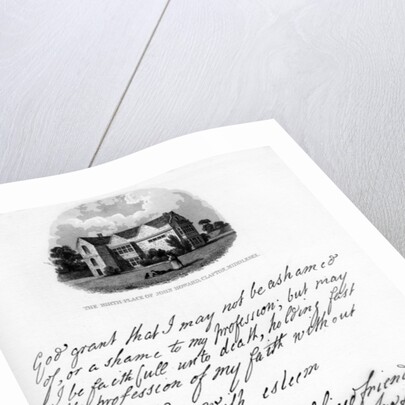 THE BIRTH PLACE OF JOHN HOWARD, CLAPTON, MIDDLESEX.
God grant that I may not be ashamed
of, or a shame to my profession; but may
I be faithfull unto death, holding fast
profession of my faith without
with esteem
friend